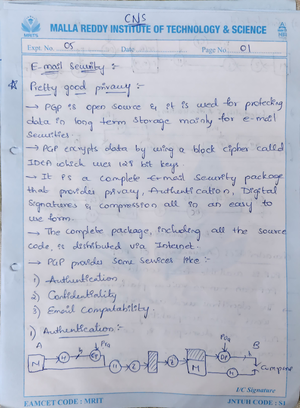 CNS
MALLA REDDY INSTITUTE OF TECHNOLOGY & SCIENCE
Expt. No. 05 Date Page No. 01
E-mail Security :-
Pretty good privacy :-
→ PGP is open source & it is used for protecting
data in long term storage mainly for e-mail
Securities.
→ PGP encrypts data by using a block cipher called
IDEA which uses 128 bit keys.
→ It is a complete E-mail Security package
that provides privacy, Authentication, Digital
Signatures & compression all in an easy to
use form.
→ The complete package, including all the source
code, is distributed via Internet.
→ PGP provides some services like :-
1) Authentication
2) Confidentiality
3) Email Compatability
1) Authentication :-
A B
M H EP Z M DP H Compare
I/C Signature
EAMCET CODE : MRIT JNTUH CODE : S1